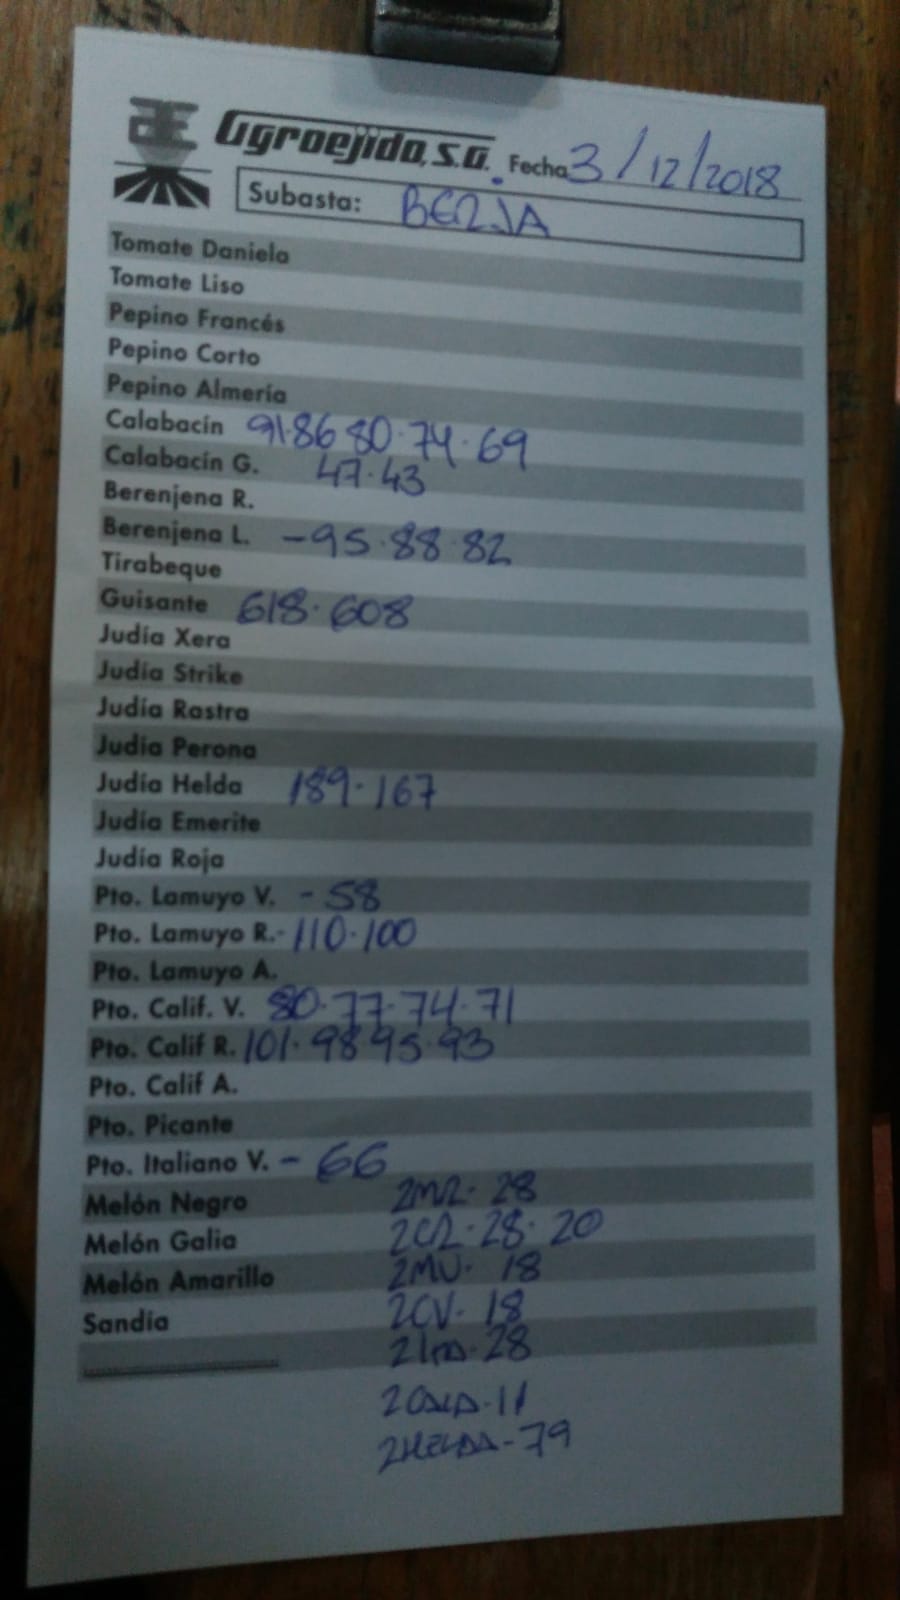 AE Agroejido, S.A. Fecha 3/12/2018
Subasta: BERJA
Tomate Daniela
Tomate Liso
Pepino Francés
Pepino Corto
Pepino Almería
Calabacín 91·86 80·74·69
Calabacín G. 47·43
Berenjena R.
Berenjena L. -95·88·82
Tirabeque
Guisante 618·608
Judía Xera
Judía Strike
Judía Rastra
Judía Perona
Judía Helda 189·167
Judía Emerite
Judía Roja
Pto. Lamuyo V. - 58
Pto. Lamuyo R.- 110·100
Pto. Lamuyo A.
Pto. Calif. V. 80·77·74·71
Pto. Calif R. 101·98 95·93
Pto. Calif A.
Pto. Picante
Pto. Italiano V. - 66
Melón Negro 2MR· 28
Melón Galia 2CR·28·20
Melón Amarillo 2MV· 18
Sandía 2CV· 18
28
2CALA·11
2HELDA-79